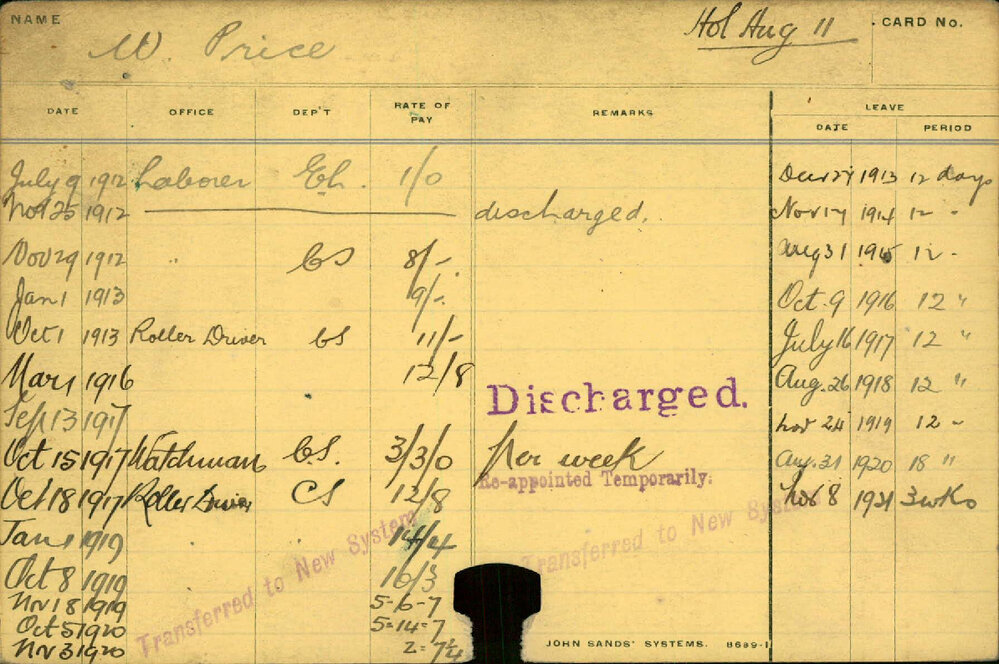 NAME
W. Price
Hol Aug 11
CARD No.
DATE OFFICE DEP'T RATE OF PAY REMARKS LEAVE
DATE PERIOD
July 9 1912 Laborer Eh. 1/0 Dec 27 1913 12 days
Nov 25 1912 discharged. Nov 17 1914 12 "
Nov 29 1912 " CS 8/-. Aug 31 1915 12 "
Jan 1 1913 9/-. Oct. 9 1916 12 "
Oct 1 1913 Roller Driver CS 11/- July 16 1917 12 "
Mar 1 1916 12/8 Aug. 26 1918 12 "
Sep 13 1917 Discharged. Nov 24 1919 12 "
Oct 15 1917 Watchman C.S. 3/3/0 per week Aug. 31 1920 18 "
Re-appointed Temporarily.
Oct 18 1917 Roller Driver CS 12/8 Nov 8 1921 3 wks
Jan 1 1919 14/4
Oct 8 1919 16/3
Nov 18 1919 5-6-7
Oct 5 1920 5-14-7
Nov 3 1920
Transferred to New System
Transferred to New System
JOHN SANDS' SYSTEMS. 8689-1